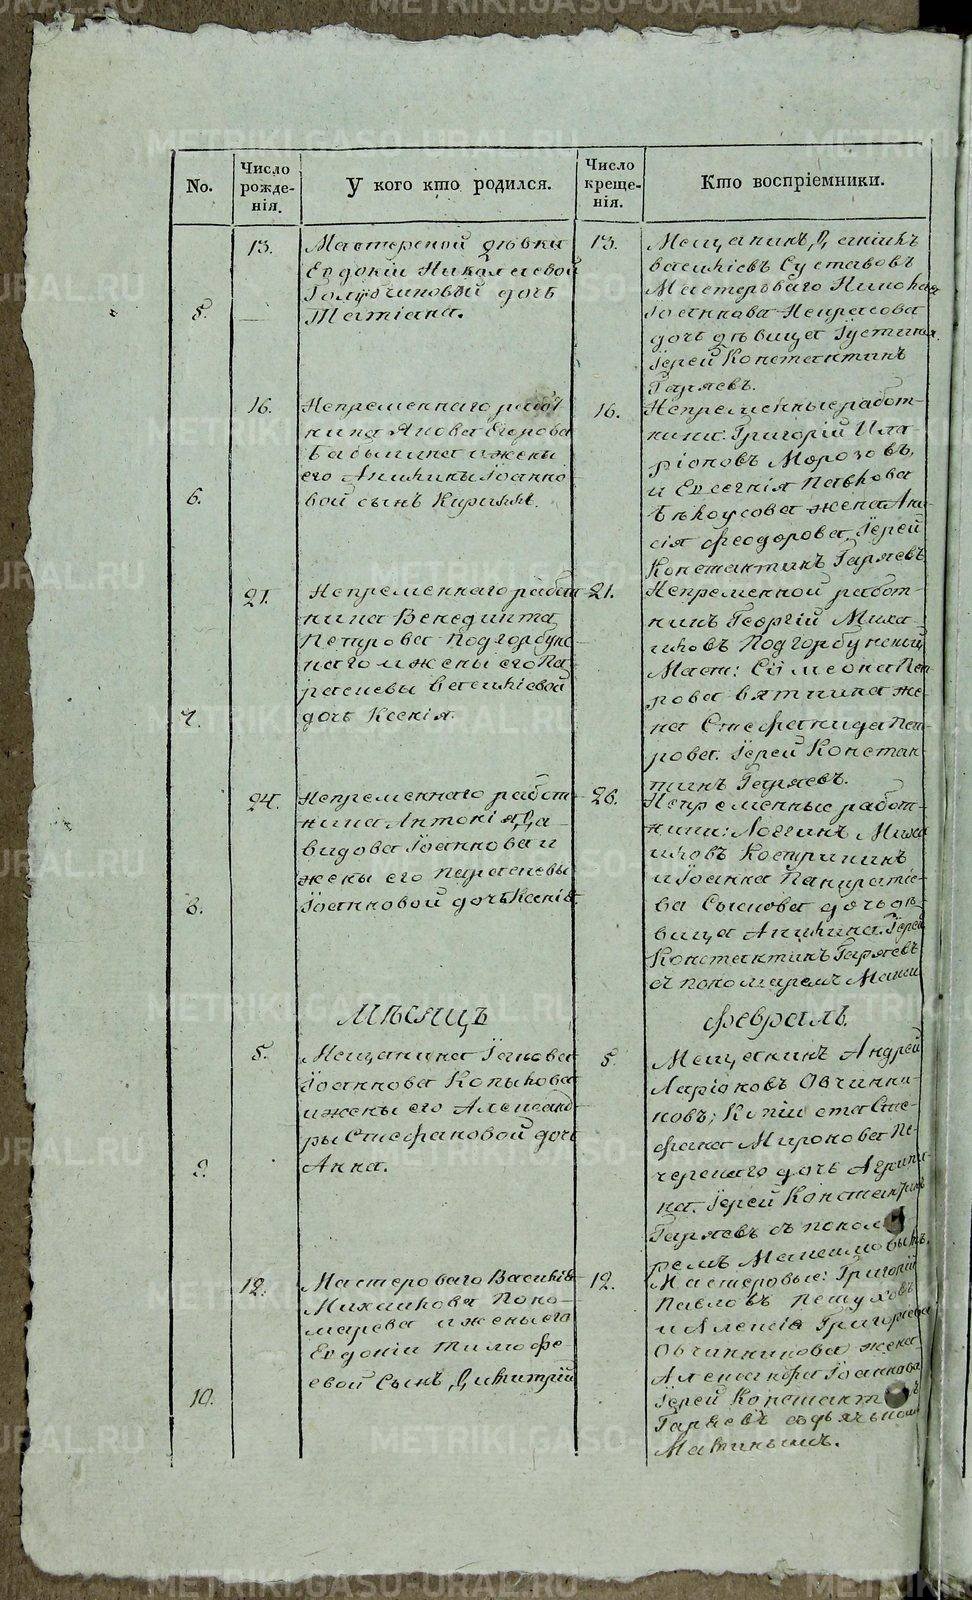 No.
Число рожде-нія.
У кого кто родился.
Число креще-нія.
Кто воспріемники.
5.
13.
Мастерской дѣвки
Евдокіи Николаевой
Голубчиковой дочь
Татіана.
13.
Мещанинъ, Данiилъ
Васильевъ Суставовъ
Мастероваго Николая
Іоаннова Некрасова
дочь дѣвица Іустинія.
Іерей Константинъ
Гаряевъ.
6.
16.
Непременнаго работ-
ника Якова Егорова
и жены
его Акилины Іоанно-
вой сынъ Кириллъ.
16.
Непременные работ-
ники: Григорій Ила-
ріоновъ Морозовъ,
и Евсегнія Павлова
Бѣлоусова жена Ана-
сія Феодорова. Іерей
Константинъ Гаряевъ
7.
21.
Непременнаго работ-
ника Венедикта
Петрова Подгорбунс-
каго и жены его Па-
расковьи Васильевой
дочь Ксенія.
21.
Непременной работ-
никъ Георгій Миха-
иловъ Подгорбунский
Маст: Сѵмеона Пет-
рова Вятчина же-
на Стефанида Пет-
рова. Іерей Констан-
тинъ Гаряевъ.
8.
24.
Непременнаго работ-
ника Антонія Да-
видова Іоаннова и
жены его Парасковьи
Іоанновой дочь Ксенія.
26.
Непременные работ-
ники: Логгинъ Миха-
иловъ Костринъ
и Іоанна Панкратіе-
ва Сыкова дочь дѣ-
вица Акилина. Іерей
Константинъ Гаряевъ
съ пономаремъ
Мѣсяцъ
Февраль.
9.
5.
Мещанина Іакова
Іоаннова Копылова
и жены его Александ-
ры Стефановой дочь
Анна.
5.
Мещанинъ Андрей
Ларіоновъ Овчинни-
ковъ; Сте-
фана Миронова Пе-
черскаго дочь Агрипи-
на. Іерей Константинъ
Гаряевъ съ понома-
ремъ
10.
12.
Мастероваго Василія
Михаилова Поно-
марева и жены его
Евдокіи Тимофе-
евой сынъ Димитрій
12.
Мастеровые: Григорій
Павловъ Петуховъ
и Алексія Григорьева
Овчинникова жена
Александра Іоаннова
Іерей Константинъ
Гаряевъ съ дьячкомъ